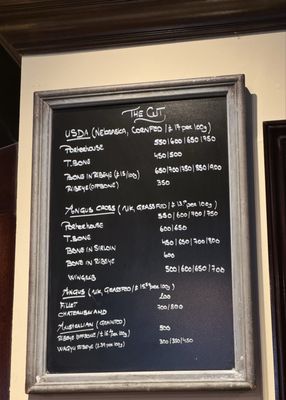 THE CUT
USDA (NEBRASKA, CORNFED / £ 17 PER 100g)
PORTERHOUSE 550/600/650/750
T.BONE 450/500
BONE IN RIBEYE (£18/100g) 650/700/750/850/900
RIBEYE (OFFBONE) 350
ANGUS CROSS (UK, GRASSFED / £ 13 PER 100g)
550/600/700/750
PORTERHOUSE 600/650
T.BONE
BONE IN SIRLOIN 450/650/700/800
BONE IN RIBEYE 600
WINGRIB 500/600/650/700
ANGUS (UK, GRASSFED / £ PER 100g)
FILLET 200
CHATEAUBRIAND 700/800
AUSTRALIAN (GRAINFED)
RIBEYE OFFBONE / £ 16 PER 100g) 500
WAGYU RIBEYE (£ 39 PER 100g) 300/350/450